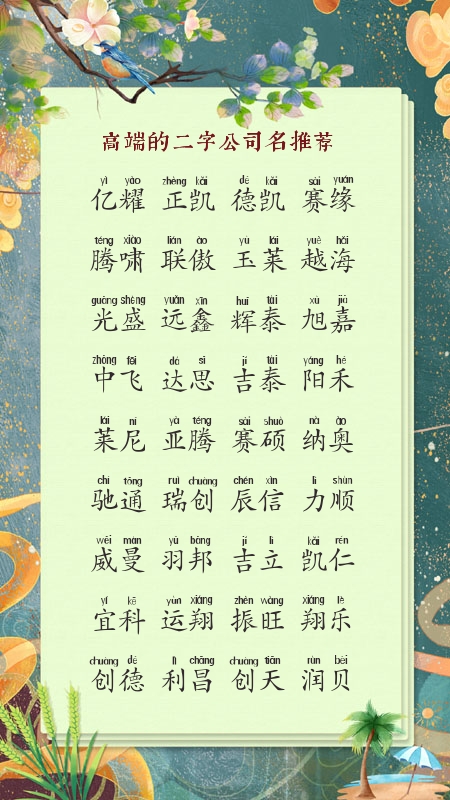 高端的二字公司名推荐
yì yào zhèng kǎi dé kǎi sài yuán
亿耀 正凯 德凯 赛缘
téng xiào lián ào yù lái yuè hǎi
腾啸 联傲 玉莱 越海
guāng shèng yuǎn xīn huī tài xù jiā
光盛 远鑫 辉泰 旭嘉
zhōng fēi dá sī jí tài yáng hé
中飞 达思 吉泰 阳禾
lái ní yà téng sài shuò nà ào
莱尼 亚腾 赛硕 纳奥
chí tōng ruì chuàng chén xìn lì shùn
驰通 瑞创 辰信 力顺
wēi màn yǔ bāng jí lì kǎi rén
威曼 羽邦 吉立 凯仁
yí kē yùn xiáng zhèn wàng xiáng lè
宜科 运翔 振旺 翔乐
chuàng dé lì chāng chuàng tiān rùn bèi
创德 利昌 创天 润贝